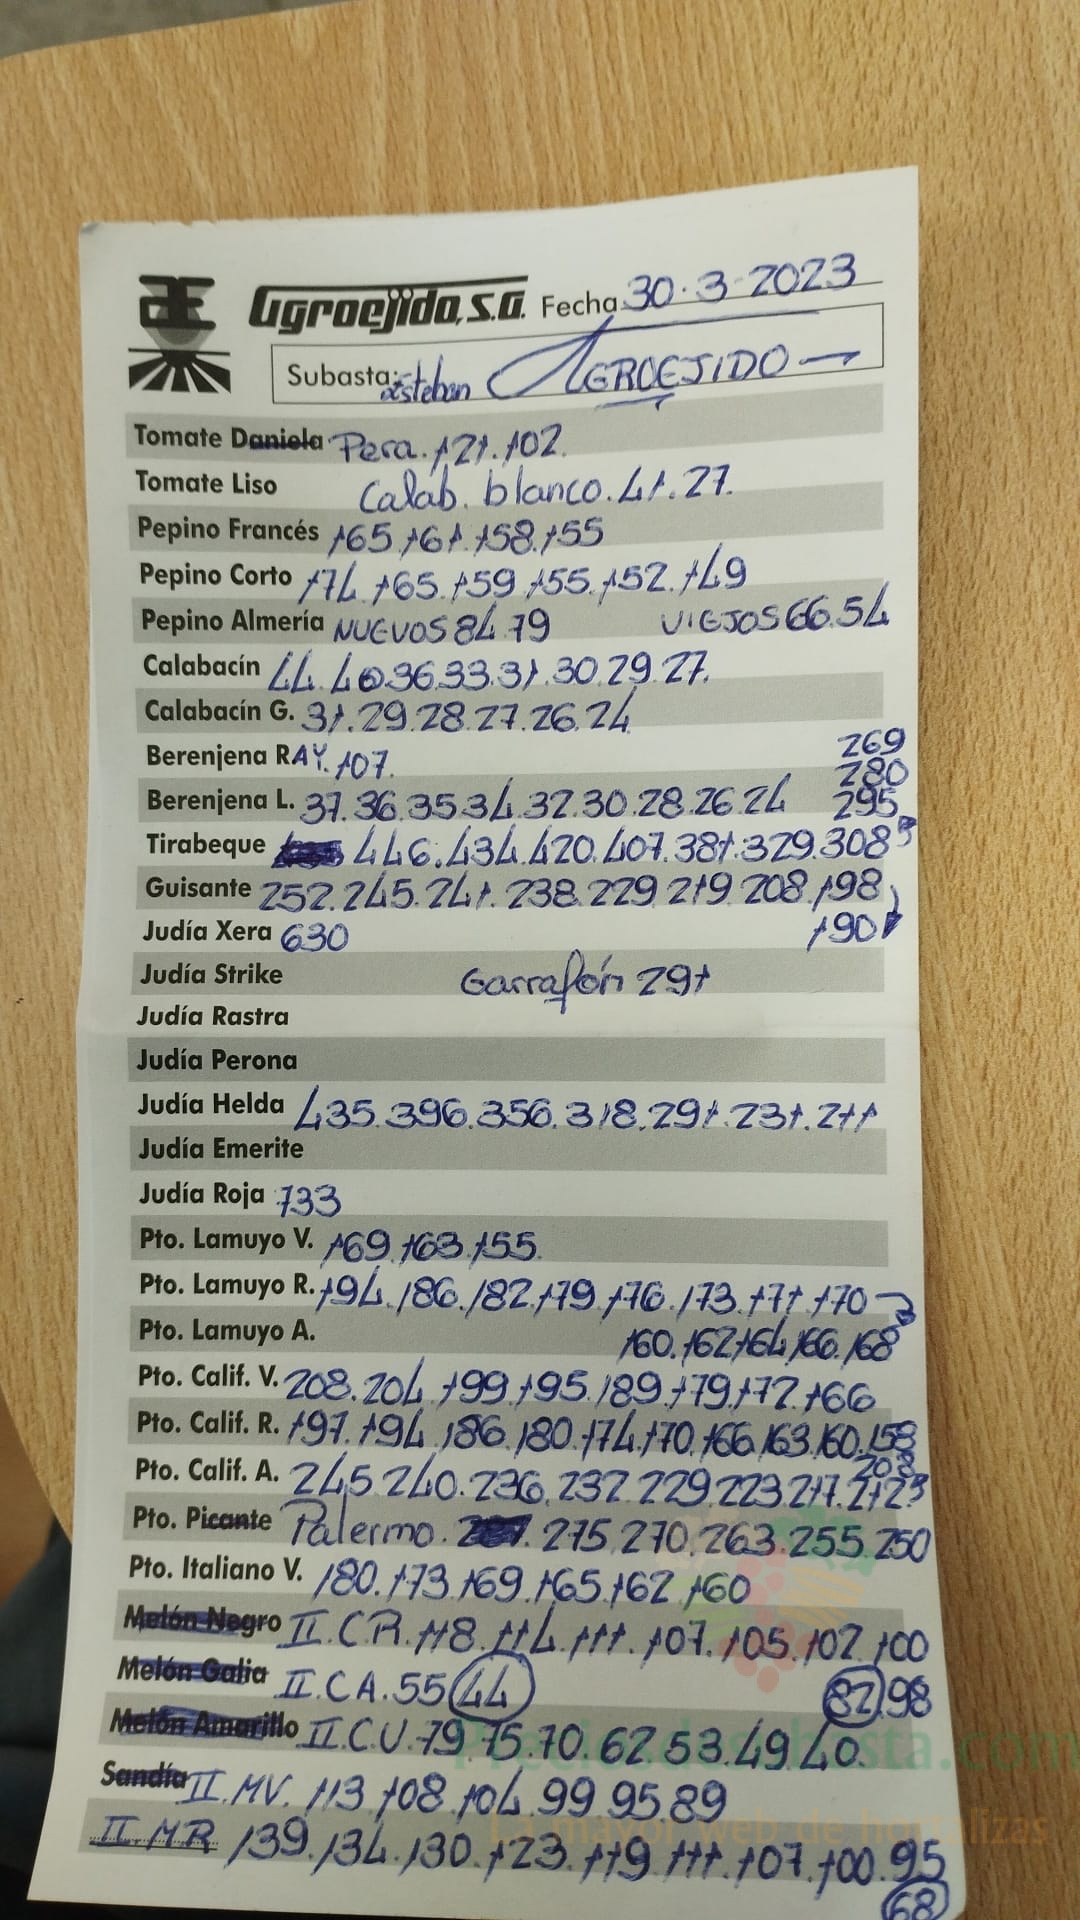 AE Agroejido, S.A. Fecha 30.3.2023
Subasta: Esteban AGROEJIDO
Tomate Daniela Pera. 121. 102.
Tomate Liso Calab. blanco. 41. 27.
Pepino Francés 165. 161. 158. 155
Pepino Corto 174. 165. 159. 155. 152. 149
Pepino Almería NUEVOS 84. 79 VIEJOS 66. 54
Calabacín 44. 40. 36. 33. 31. 30. 29. 27.
Calabacín G. 31. 29. 28. 27. 26. 24
Berenjena RAY. 107. 269
280
Berenjena L. 37. 36. 35. 34. 32. 30. 28. 26. 24 295
Tirabeque 446. 434. 420. 407. 381. 329. 308
Guisante 252. 245. 241. 238. 229. 219. 208. 198
Judía Xera 630 190
Judía Strike Garrafón 291
Judía Rastra
Judía Perona
Judía Helda 435. 396. 356. 318. 291. 231. 211
Judía Emerite
Judía Roja 733
Pto. Lamuyo V. 169. 163. 155.
Pto. Lamuyo R. 194. 186. 182. 179. 176. 173. 171 170
Pto. Lamuyo A. 160. 162 164. 166. 168
Pto. Calif. V. 208. 204. 199. 195. 189. 179. 172. 166
Pto. Calif. R. 197. 194. 186. 180. 174. 170. 166. 163. 160. 158
208
Pto. Calif. A. 245. 240. 236. 232. 229. 223. 217. 212
Pto. Picante Palermo. 275. 270. 263. 255. 250
Pto. Italiano V. 180. 173. 169. 165. 162. 160
Melón Negro II. CR. 118. 114. 111. 107. 105. 102. 100
Melón Galia II. CA. 55 44 82. 98
Melón Amarillo II. CU. 79. 75. 70. 62. 53. 49. 40.
Preciosdesubasta.com
Sandía II. MV. 113. 108. 104. 99. 95. 89
La mayor web de hortalizas
II. MR 139. 134. 130. 123. 119. 111. 107. 100. 95
68